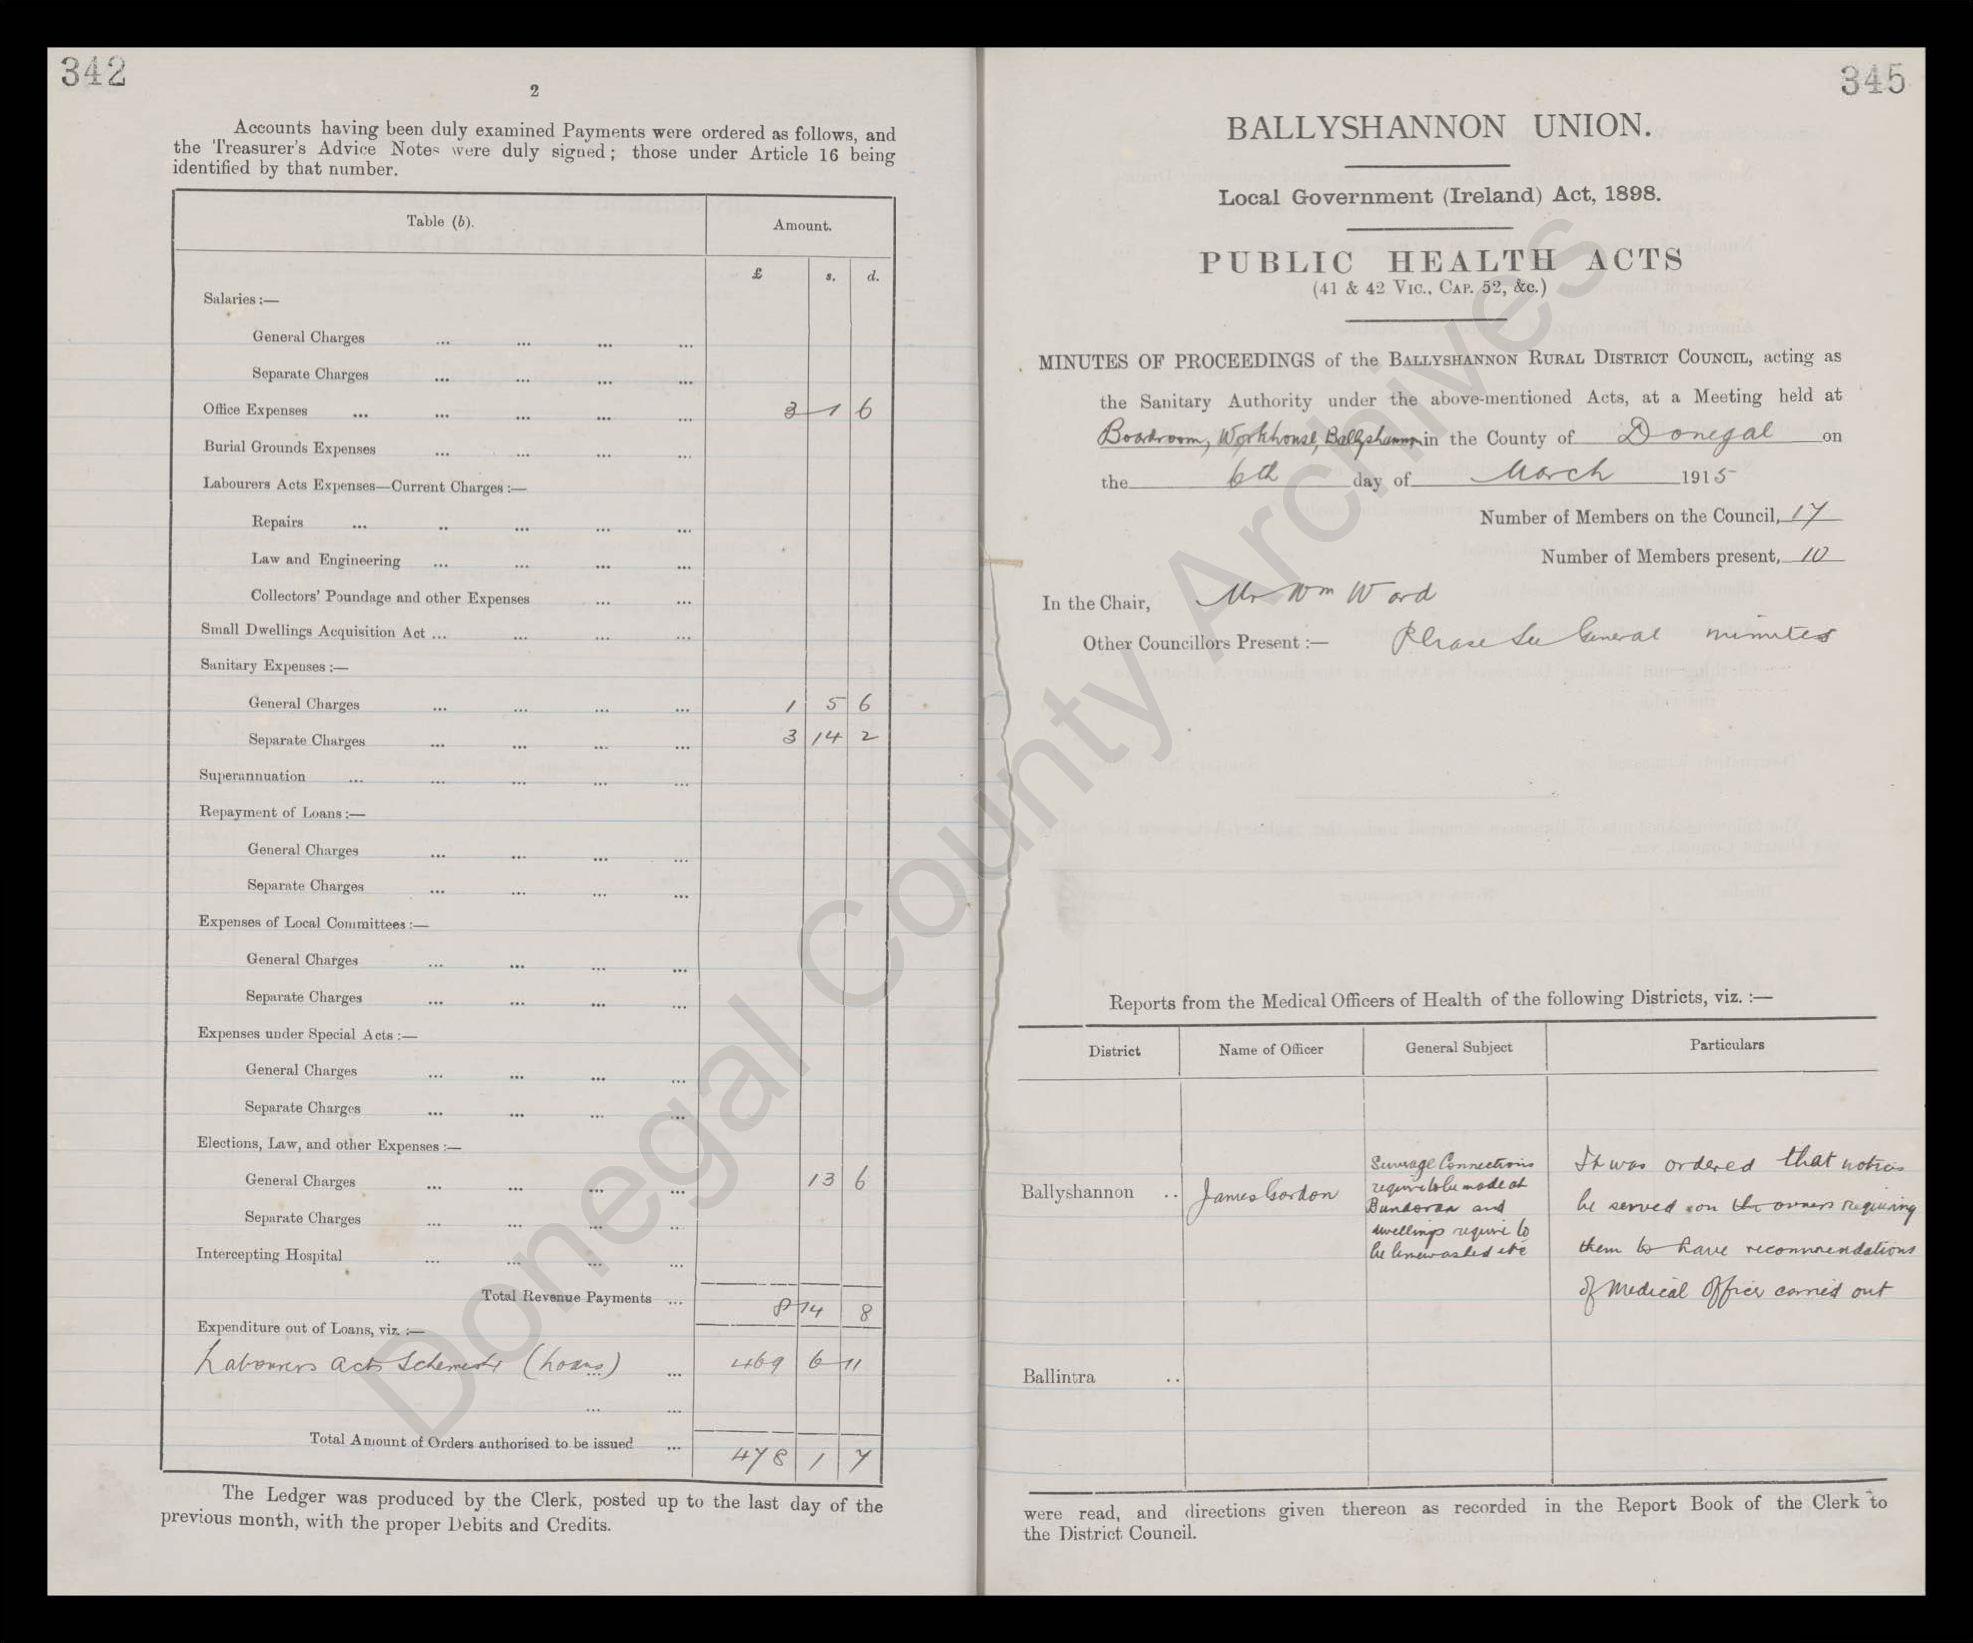 342
2
Accounts having been duly examined Payments were ordered as follows, and
the Treasurer's Advice Notes were duly signed; those under Article 16 being
identified by that number.
Table (b). Amount.
£ s. d.
Salaries :—
General Charges ... ... ... ...
Separate Charges ... ... ... ...
Office Expenses ... ... ... ... ... 3 1 6
Burial Grounds Expenses ... ... ... ...
Labourers Acts Expenses—Current Charges :—
Repairs ... .. ... ... ...
Law and Engineering ... ... ... ...
Collectors' Poundage and other Expenses ... ...
Small Dwellings Acquisition Act ... ... ... ...
Sanitary Expenses :—
General Charges ... ... ... ... 1 5 6
Separate Charges ... ... ... ... 3 14 2
Superannuation ... ... ... ... ...
Repayment of Loans :—
General Charges ... ... ... ...
Separate Charges ... ... ... ...
Expenses of Local Committees :—
General Charges ... ... ... ...
Separate Charges ... ... ... ...
Expenses under Special Acts :—
General Charges ... ... ... ...
Separate Charges ... ... ... ...
Elections, Law, and other Expenses :—
General Charges ... ... ... ... 13 6
Separate Charges ... ... ... ...
Intercepting Hospital ... ... ... ...
Total Revenue Payments ... 8 14 8
Expenditure out of Loans, viz. :—
Labourers Acts Schemes (Loans) ... ... 469 6 11
... ...
Total Amount of Orders authorised to be issued ... 478 1 7
The Ledger was produced by the Clerk, posted up to the last day of the
previous month, with the proper Debits and Credits.
345
BALLYSHANNON UNION.
Local Government (Ireland) Act, 1898.
PUBLIC HEALTH ACTS
(41 & 42 VIC., CAP. 52, &c.)
MINUTES OF PROCEEDINGS of the BALLYSHANNON RURAL DISTRICT COUNCIL, acting as
the Sanitary Authority under the above-mentioned Acts, at a Meeting held at
Boardroom, Workhouse, Ballyshannon in the County of Donegal on
the 6th day of March 1915
Number of Members on the Council, 17
Number of Members present, 10
In the Chair, Mr Wm Ward
Other Councillors Present :— Please See General minutes
Reports from the Medical Officers of Health of the following Districts, viz. :—
District Name of Officer General Subject Particulars
Ballyshannon .. James Gordon
Sewrage Connections
require to be made at
Bundoran and
dwellings require to
be limewashed etc
It was ordered that notices
be served on the owners requiring
them to have recommendations
of Medical Officer carried out
Ballintra ..
were read, and directions given thereon as recorded in the Report Book of the Clerk to
the District Council.
Donegal County Archives